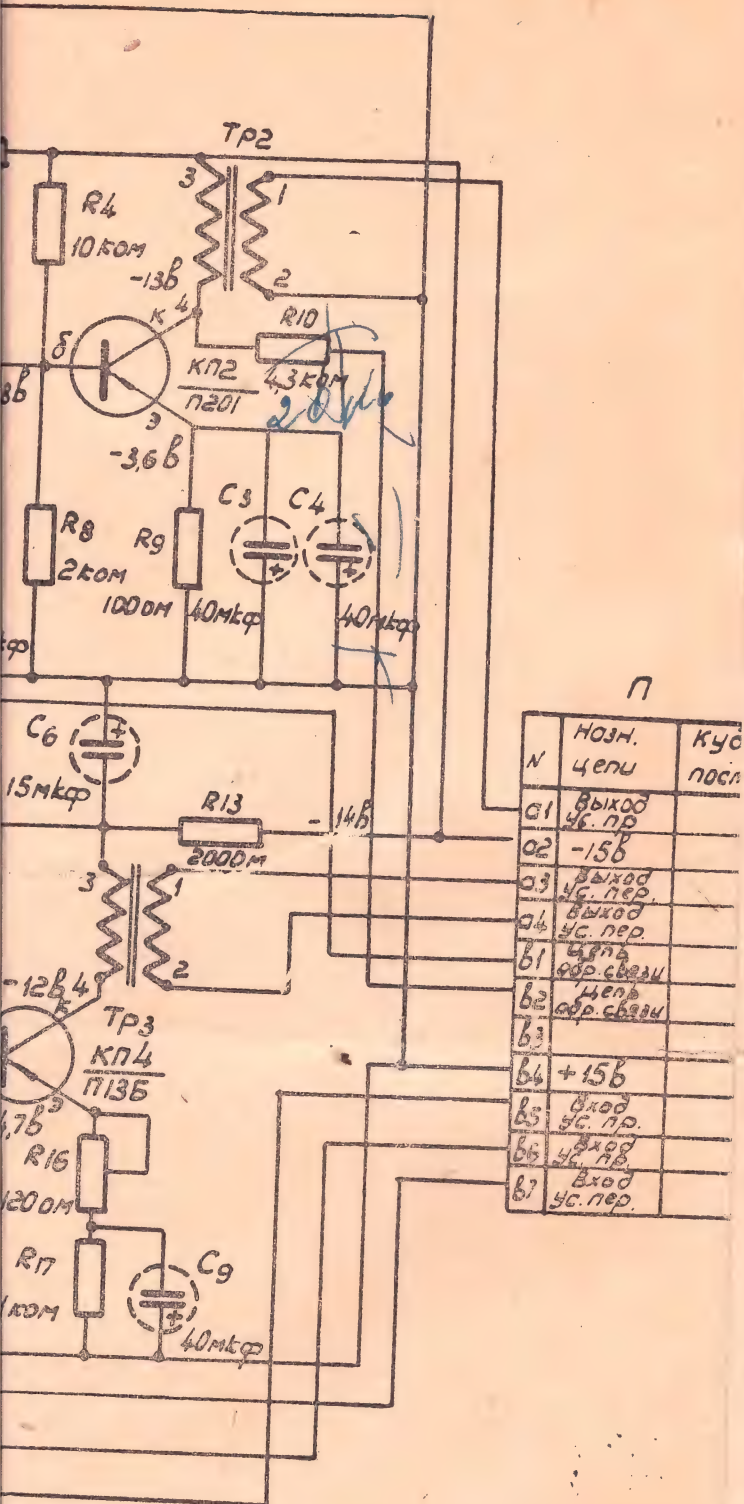 Тр2
3
1
R4
10 ком
-13в
4
2
R10
к
б
КП2
П201
4,3 ком
8в
э
-3,6в
С3
С4
R8
2ком
R9
100ом
40мкф
40мкф
кф
П
С6
15мкф
R13
200ом
-14в
3
1
2
-12в
4
к
Тр3
КП4
П13Б
4,7в
э
R16
120ом
Rп
1ком
С9
40мкф
N
Назн. цепи
Куд
посл
а1 Выход ус. пр
а2 -15в
а3 Выход ус. пер.
а4 Выход ус. пер.
в1 Цепь обр. связи
в2 Цепь обр. связи
в3
в4 +15в
в5 Вход ус. пр.
в6 Вход ус. пр.
в7 Вход ус. пер.